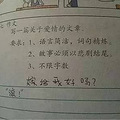 作文
写一篇关于爱情的文章
要求：1、语言简洁，词句精炼。
2、故事必须以悲剧结尾。
3、不限字数
嫁给我好吗？
"滚！"